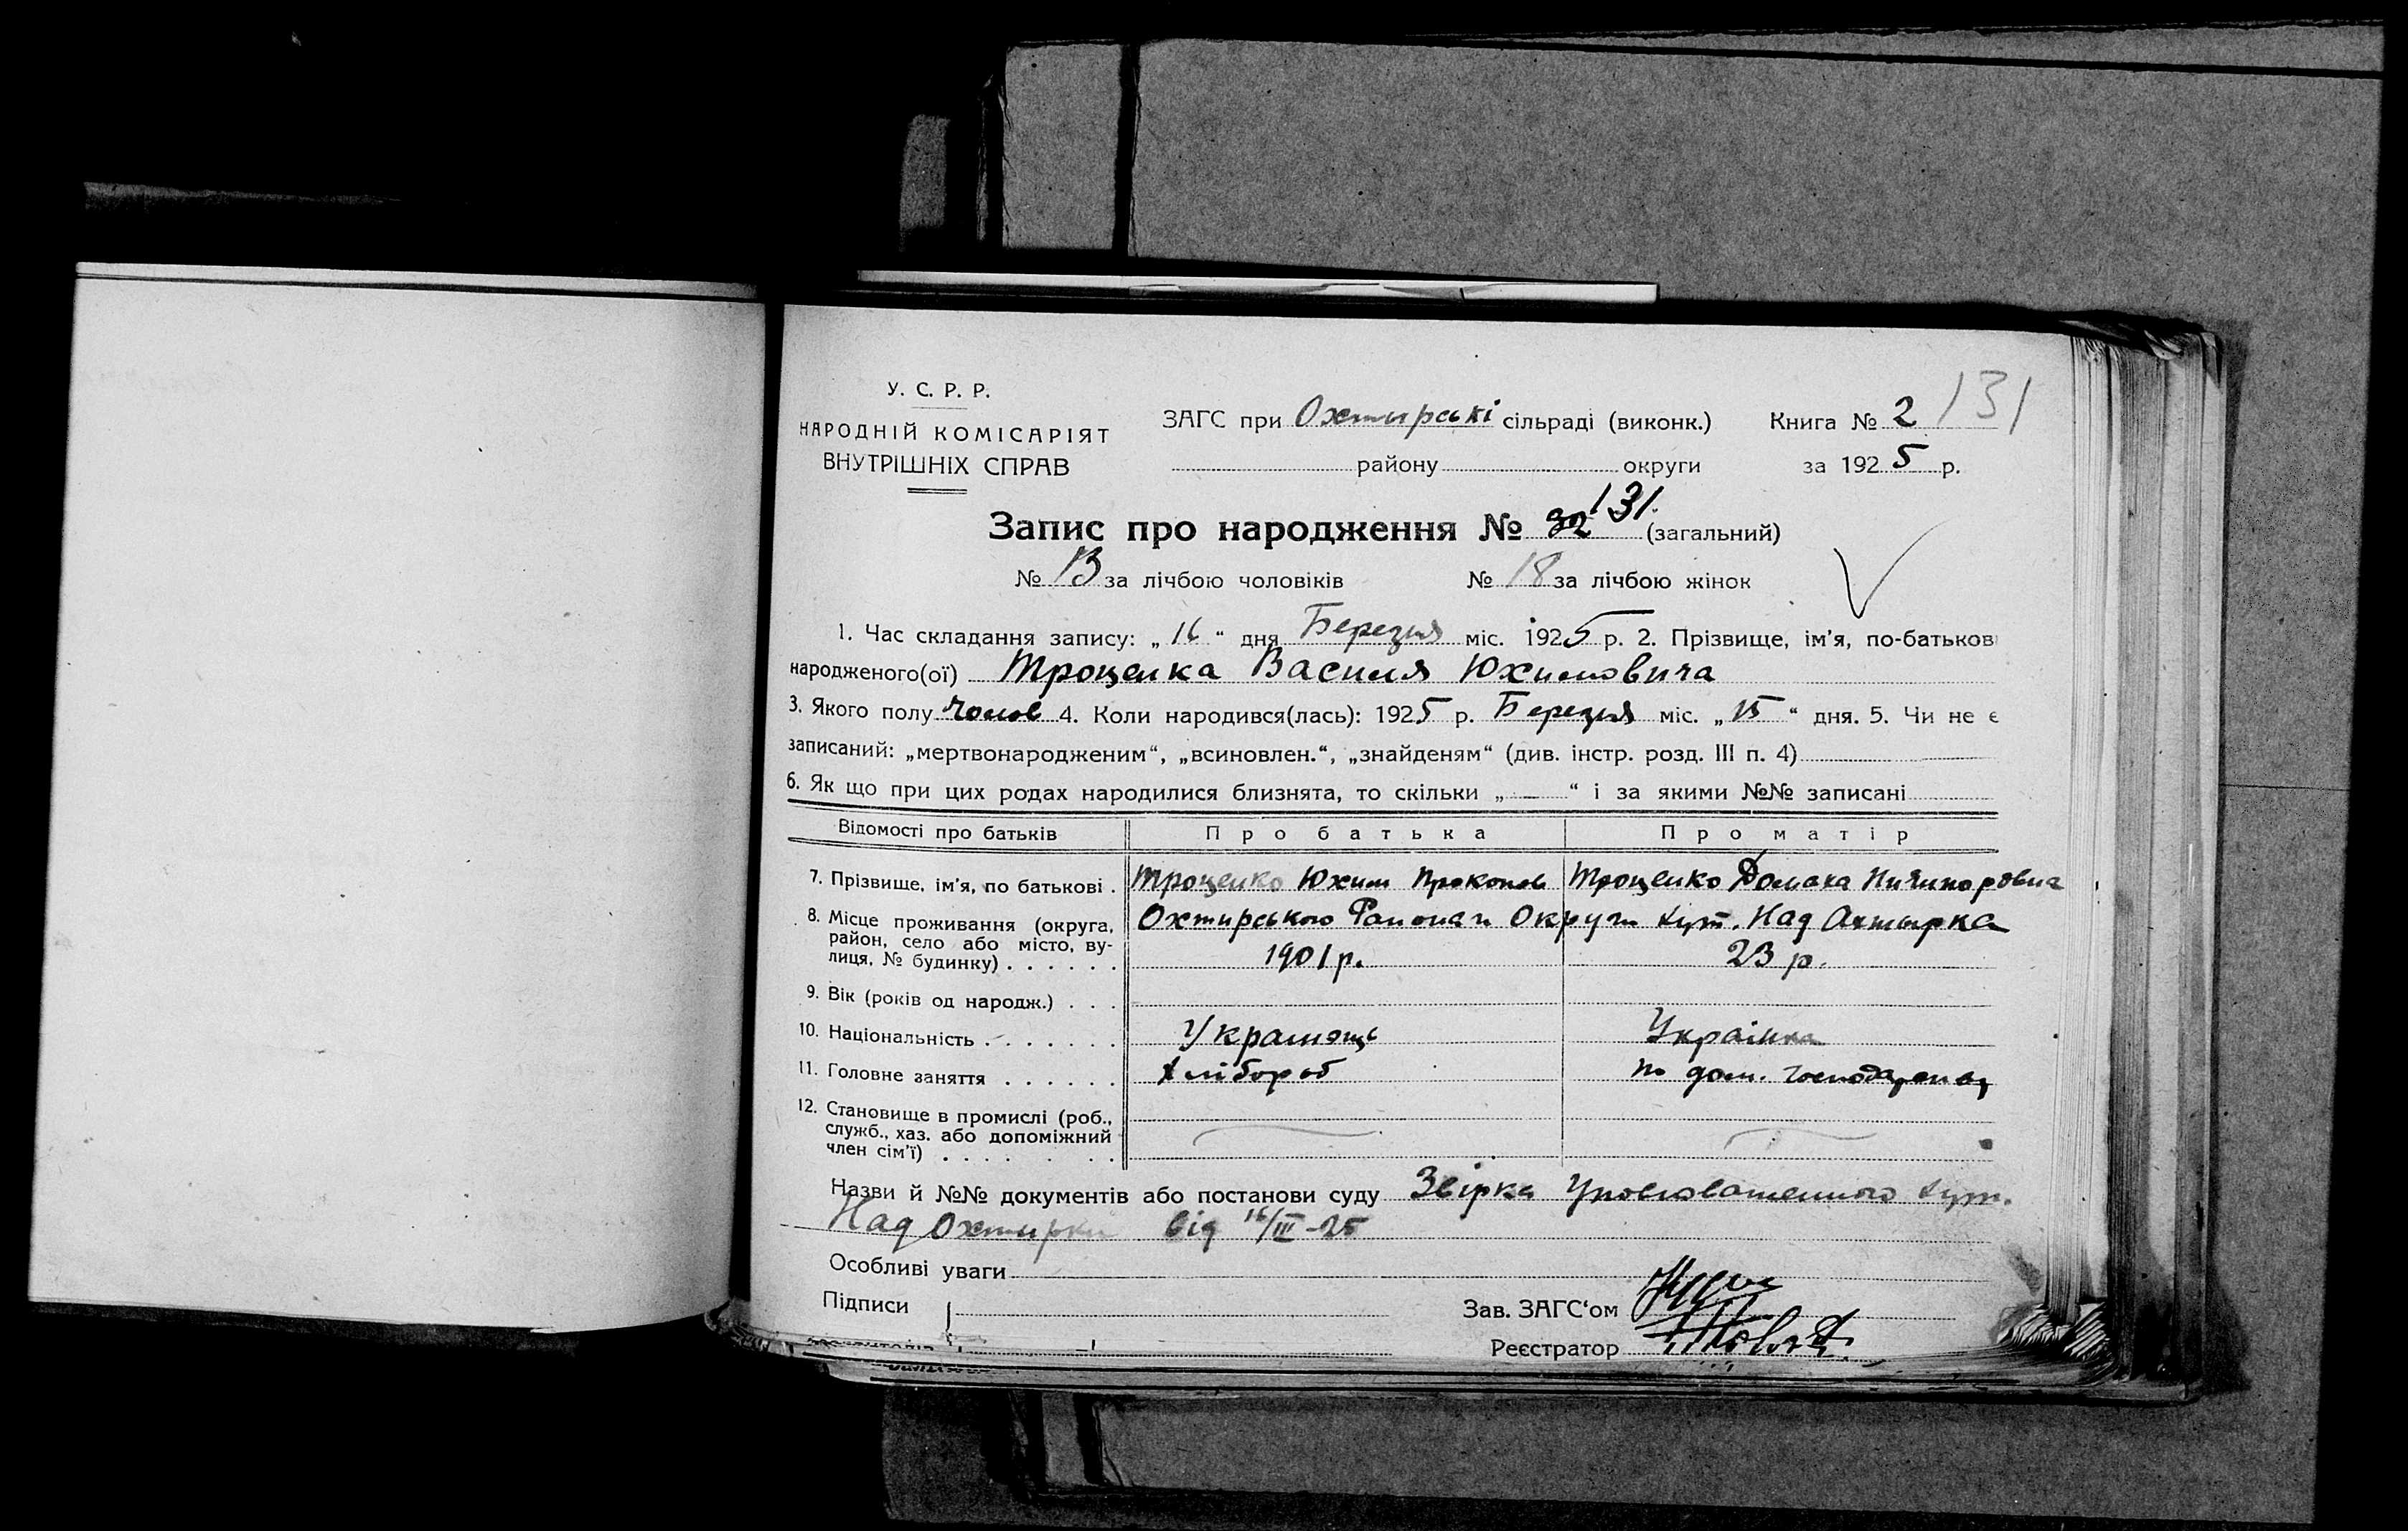 У. С. Р. Р.
НАРОДНІЙ КОМІСАРІЯТ
ВНУТРІШНІХ СПРАВ
ЗАГС при Охтирські сільраді (виконк.) Книга № 2 131
району округи за 1925 р.
Запис про народження № 32 131 (загальний)
№ 13 за лічбою чоловіків № 18 за лічбою жінок
1. Час складання запису: „16“ дня Березня міс. 1925 р. 2. Прізвище, ім'я, по-батькові
народженого(ої) Троценка Василя Юхимовича
3. Якого полу чолов 4. Коли народився(лась): 1925 р. Березня міс. „15“ дня. 5. Чи не є
записаний: „мертвонародженим“, „всиновлен.“, „знайденям“ (див. інстр. розд. III п. 4)
6. Як що при цих родах народилися близнята, то скільки „—“ і за якими №№ записані
Відомості про батьків Про батька Про матір
7. Прізвище, ім'я, по батькові . Троценко Юхим Прокопов Троценко Домаха
8. Місце проживання (округа, Охтирського Району Округи хут. Над Ахтырка
район, село або місто, ву-
лиця, № будинку) . . . . . . 1901 р. 23 р.
9. Вік (років од народж.) . . .
10. Національність . . . . . . . Украінець Украінка
11. Головне заняття . . . . . . Хлібороб по дом. господарству
12. Становище в промислі (роб.,
служб., хаз. або допоміжний
член сім'ї) . . . . . . .
Назви й №№ документів або постанови суду Звірка Уповноваженного хут.
Над Охтирка від 16/III-25
Особливі уваги
Підписи Зав. ЗАГС'ом
Реєстратор